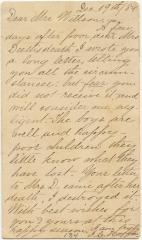 Dec. 19th/84
Dear Mrs Willson, a few
days after poor dear Mrs
Deeth's death I wrote you
a long letter, telling
you all the circum-
stances. but fear you
did not receive it and
will consider me neg-
ligent. The boys are
well and happy—
poor children they
little know what they
have lost— Your letter
to Mrs D. came after her
death, I destroyed it.
With best wishes for
you & yours at this
happy season I am truly